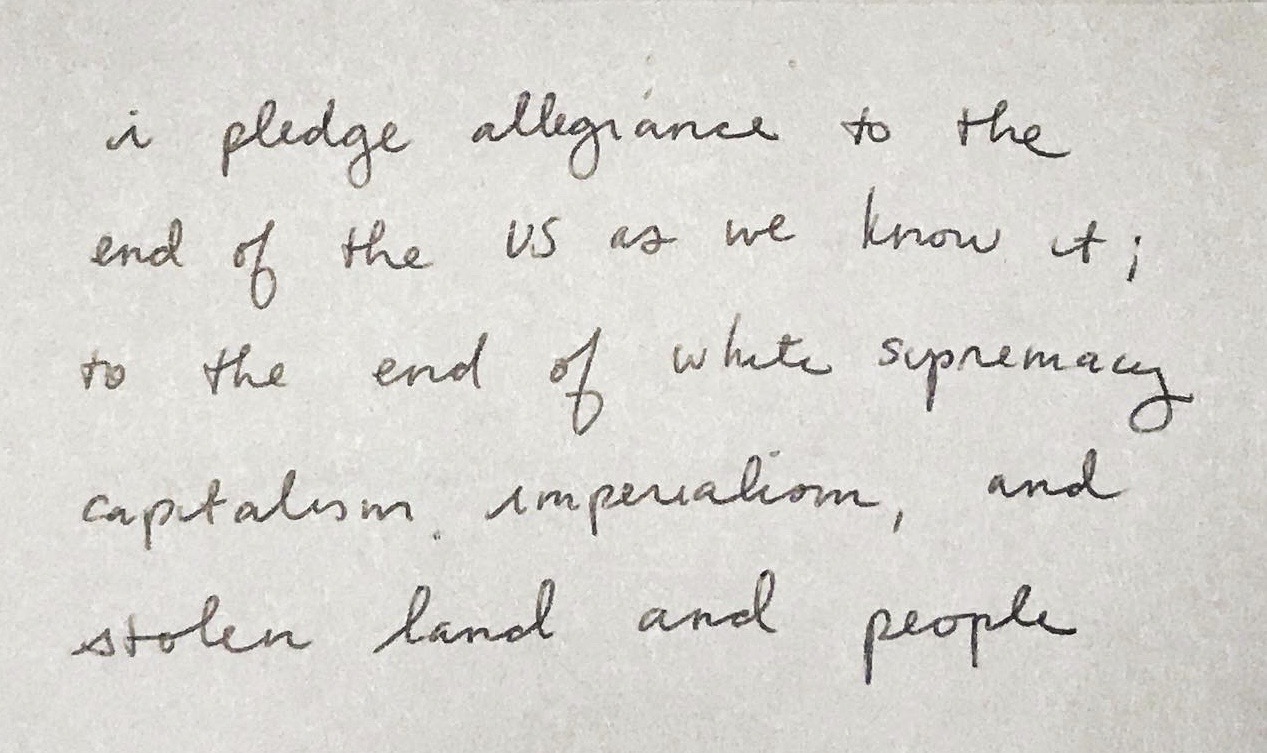 i pledge allegiance to the
end of the US as we know it;
to the end of white supremacy
capitalism, imperialism, and
stolen land and people